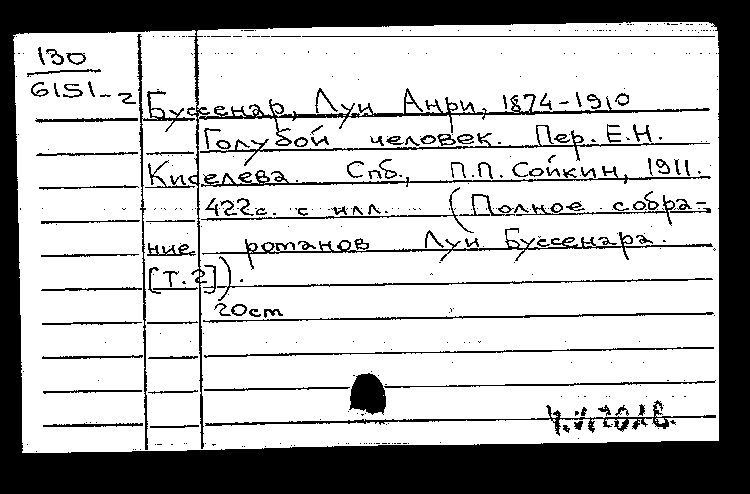 130
6151-2
Буссенар, Луи Анри, 1874-1910
Голубой человек. Пер. Е.Н.
Киселева. Спб., П.П. Сойкин, 1911.
422с. с илл. (Полное собра-
ние романов Луи Буссенара.
[Т.2]).
20см